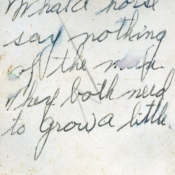 What a horse
say nothing
of the mule.
They both need
to grow a little.